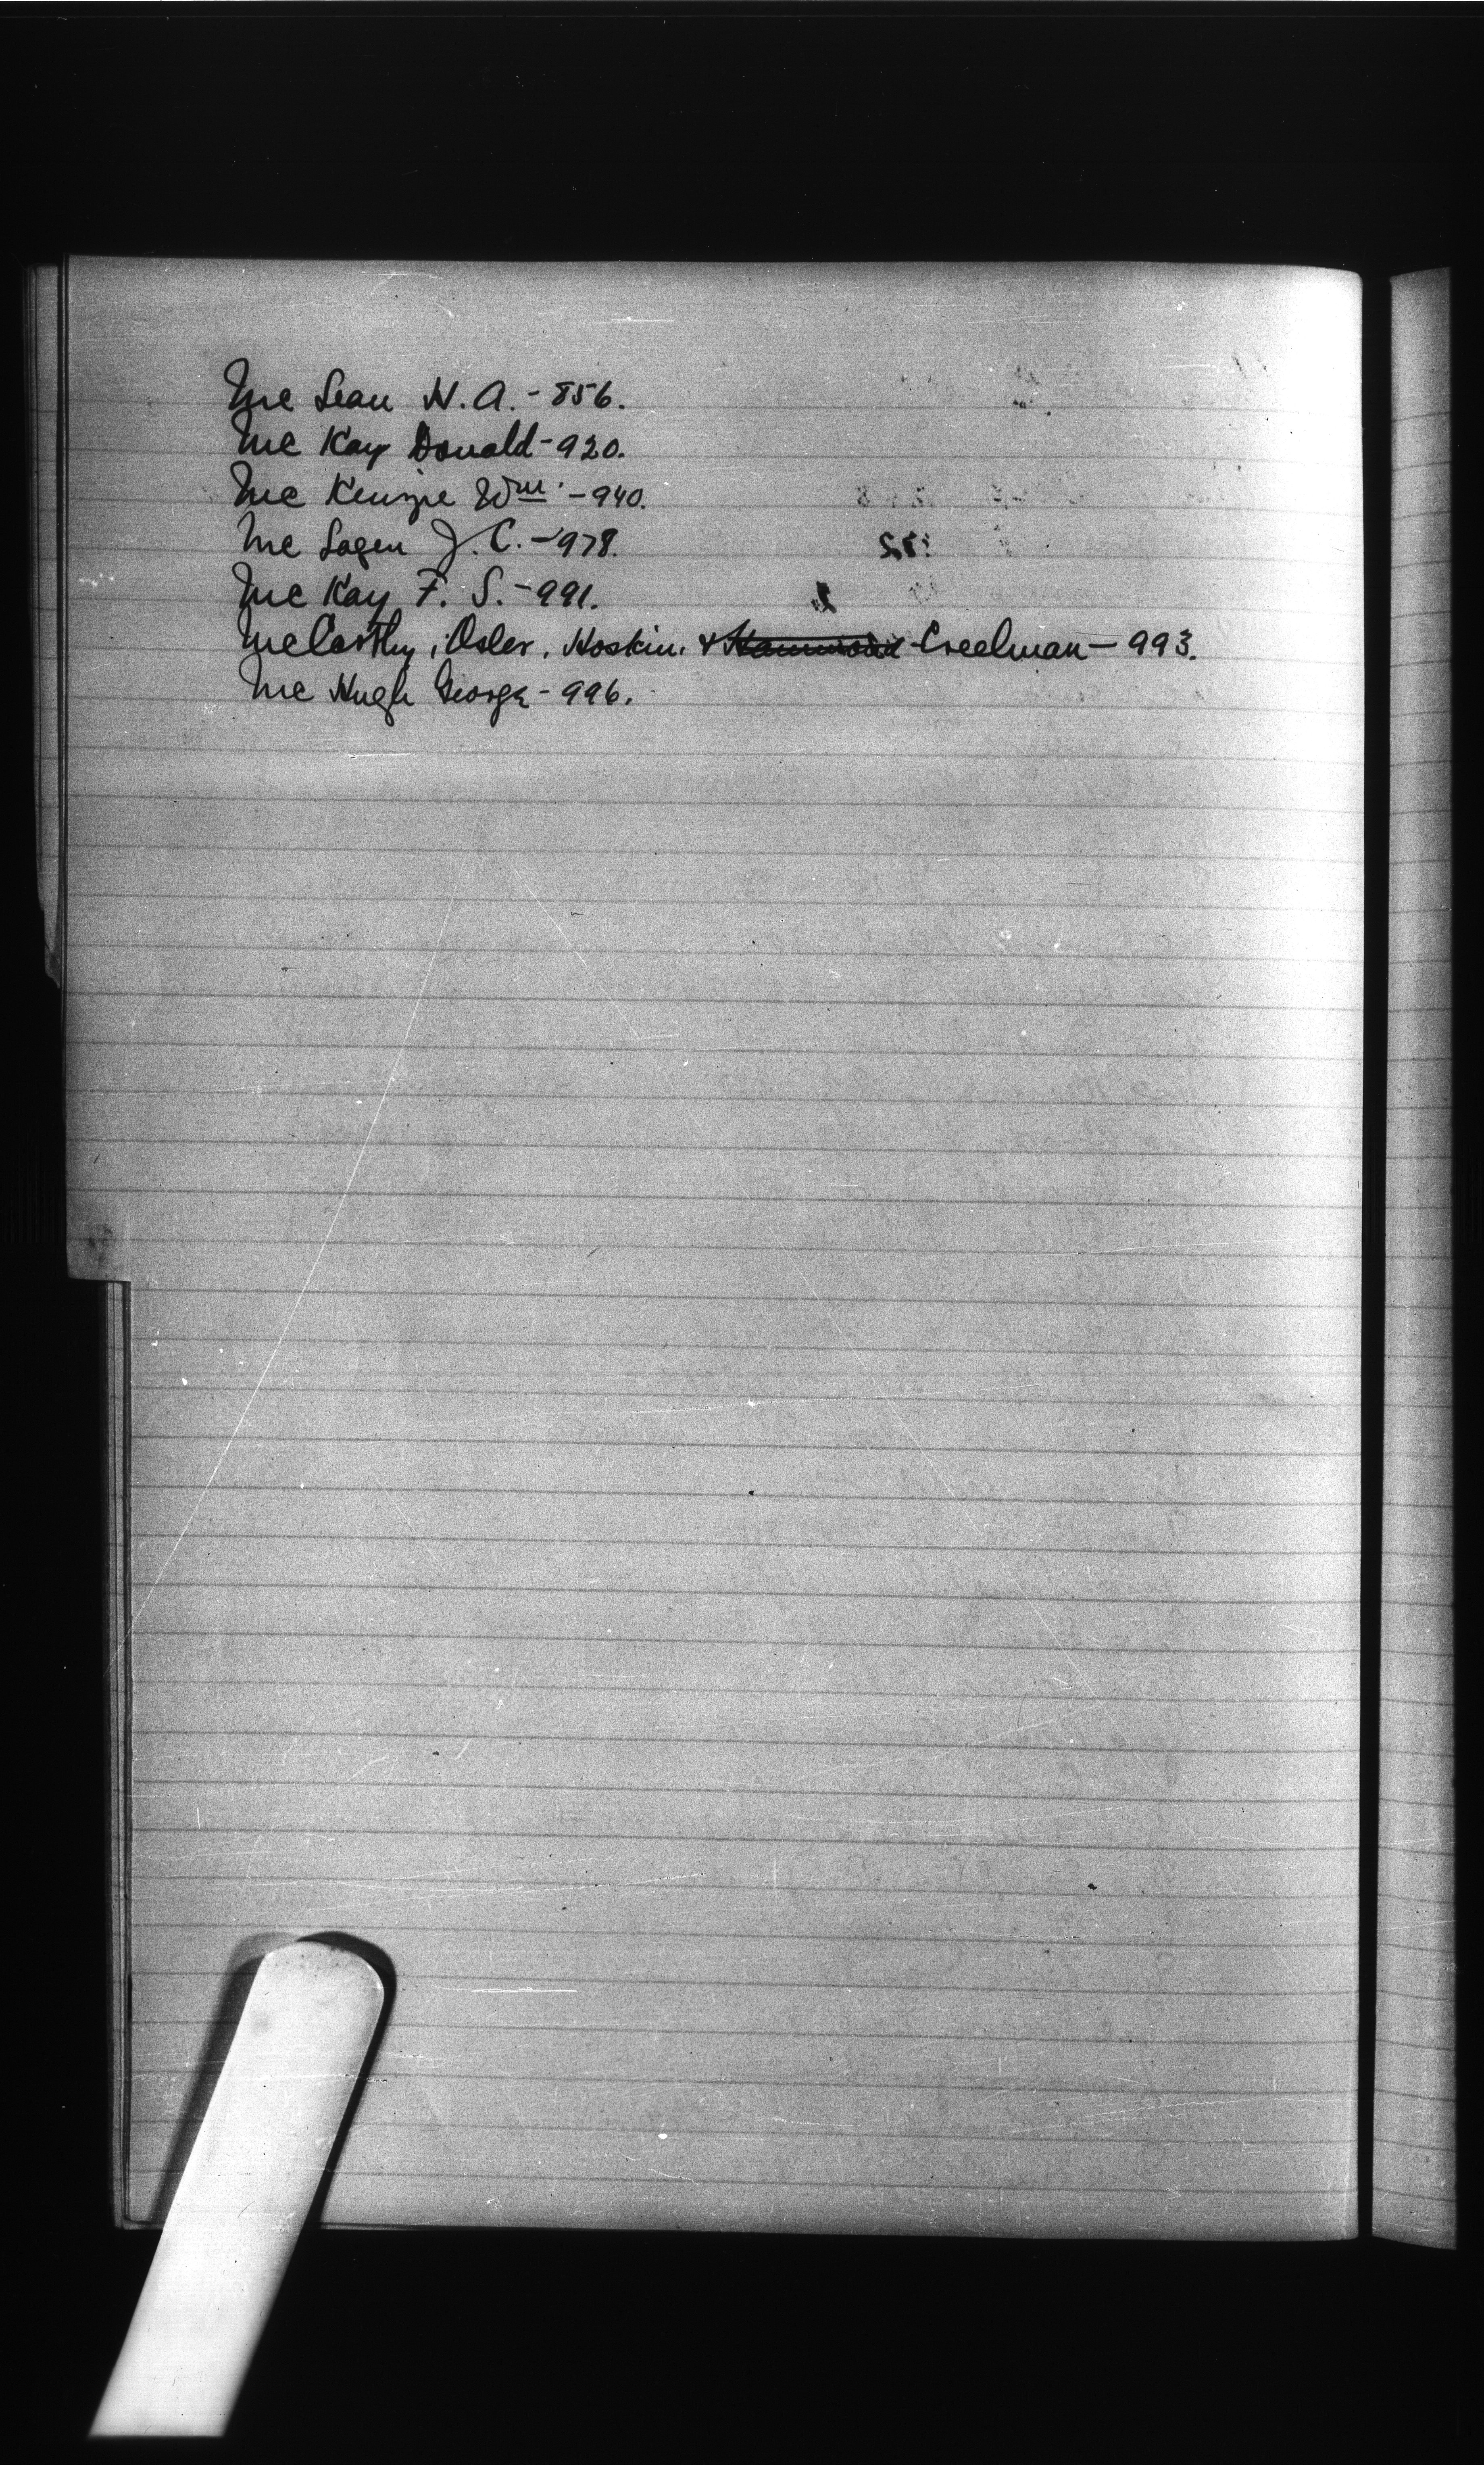 McLean H. A. - 856.
McKay Donald - 920.
McKenzie Wm. - 940.
McLagen J. C. - 978.
McKay F. S. - 991.
McCarthy, Osler, Hoskin, & Creelman - 993.
McHugh George - 996.